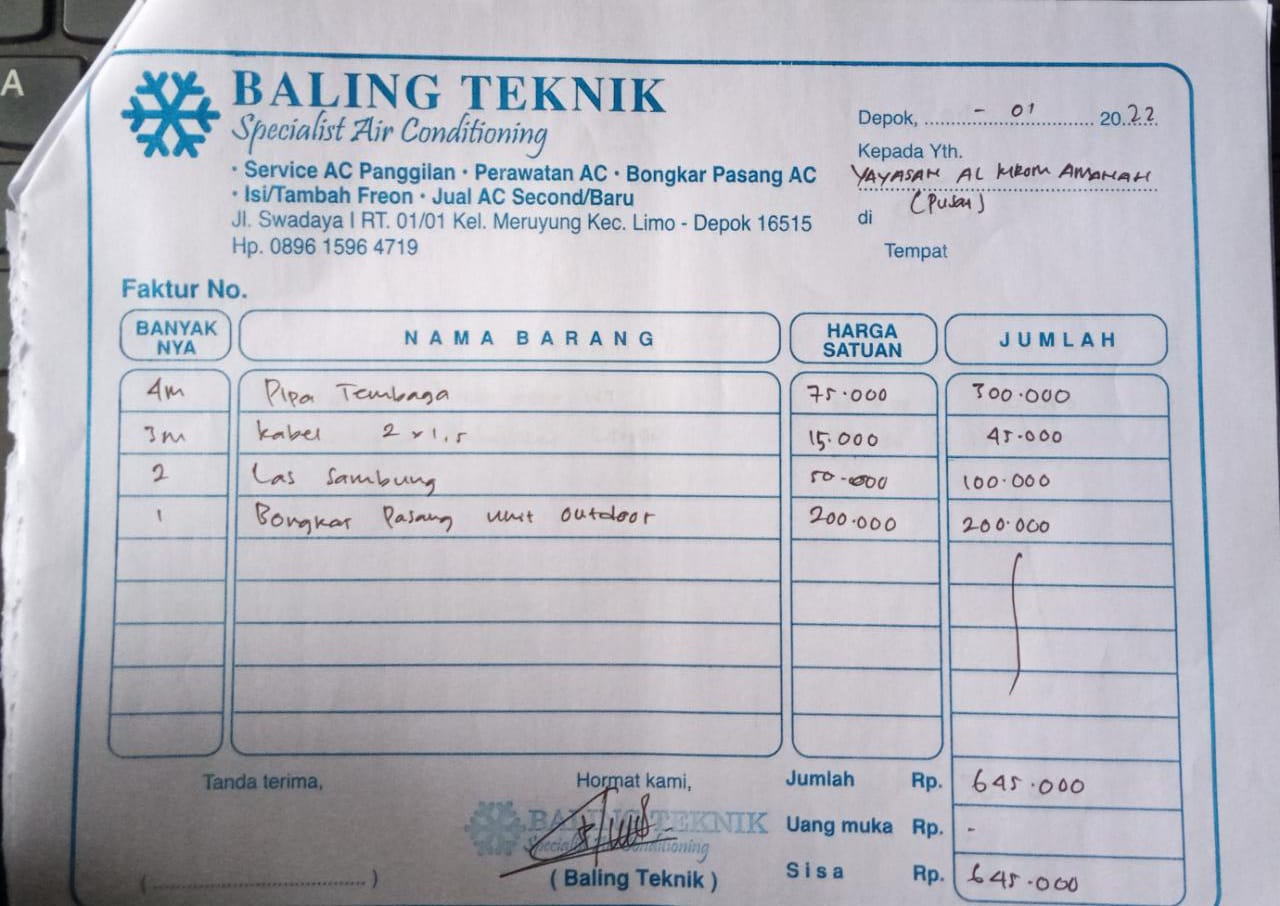 A
BALING TEKNIK
Specialist Air Conditioning
• Service AC Panggilan • Perawatan AC • Bongkar Pasang AC
• Isi/Tambah Freon • Jual AC Second/Baru
Jl. Swadaya I RT. 01/01 Kel. Meruyung Kec. Limo - Depok 16515
Hp. 0896 1596 4719
Depok, - 01 2022
Kepada Yth.
YAYASAN AL AMANAH
(Pusat)
di
Tempat
Faktur No.
BANYAK NYA NAMA BARANG HARGA SATUAN JUMLAH
4m Pipa Tembaga 75.000 300.000
3m kabel 2 x 1,5 15.000 45.000
2 Las sambung 50.000 100.000
1 Bongkar Pasang unit outdoor 200.000 200.000
Tanda terima, Hormat kami, Jumlah Rp. 645.000
BALING TEKNIK Uang muka Rp. -
Specialist Air Conditioning
(..............................) ( Baling Teknik ) Sisa Rp. 645.000